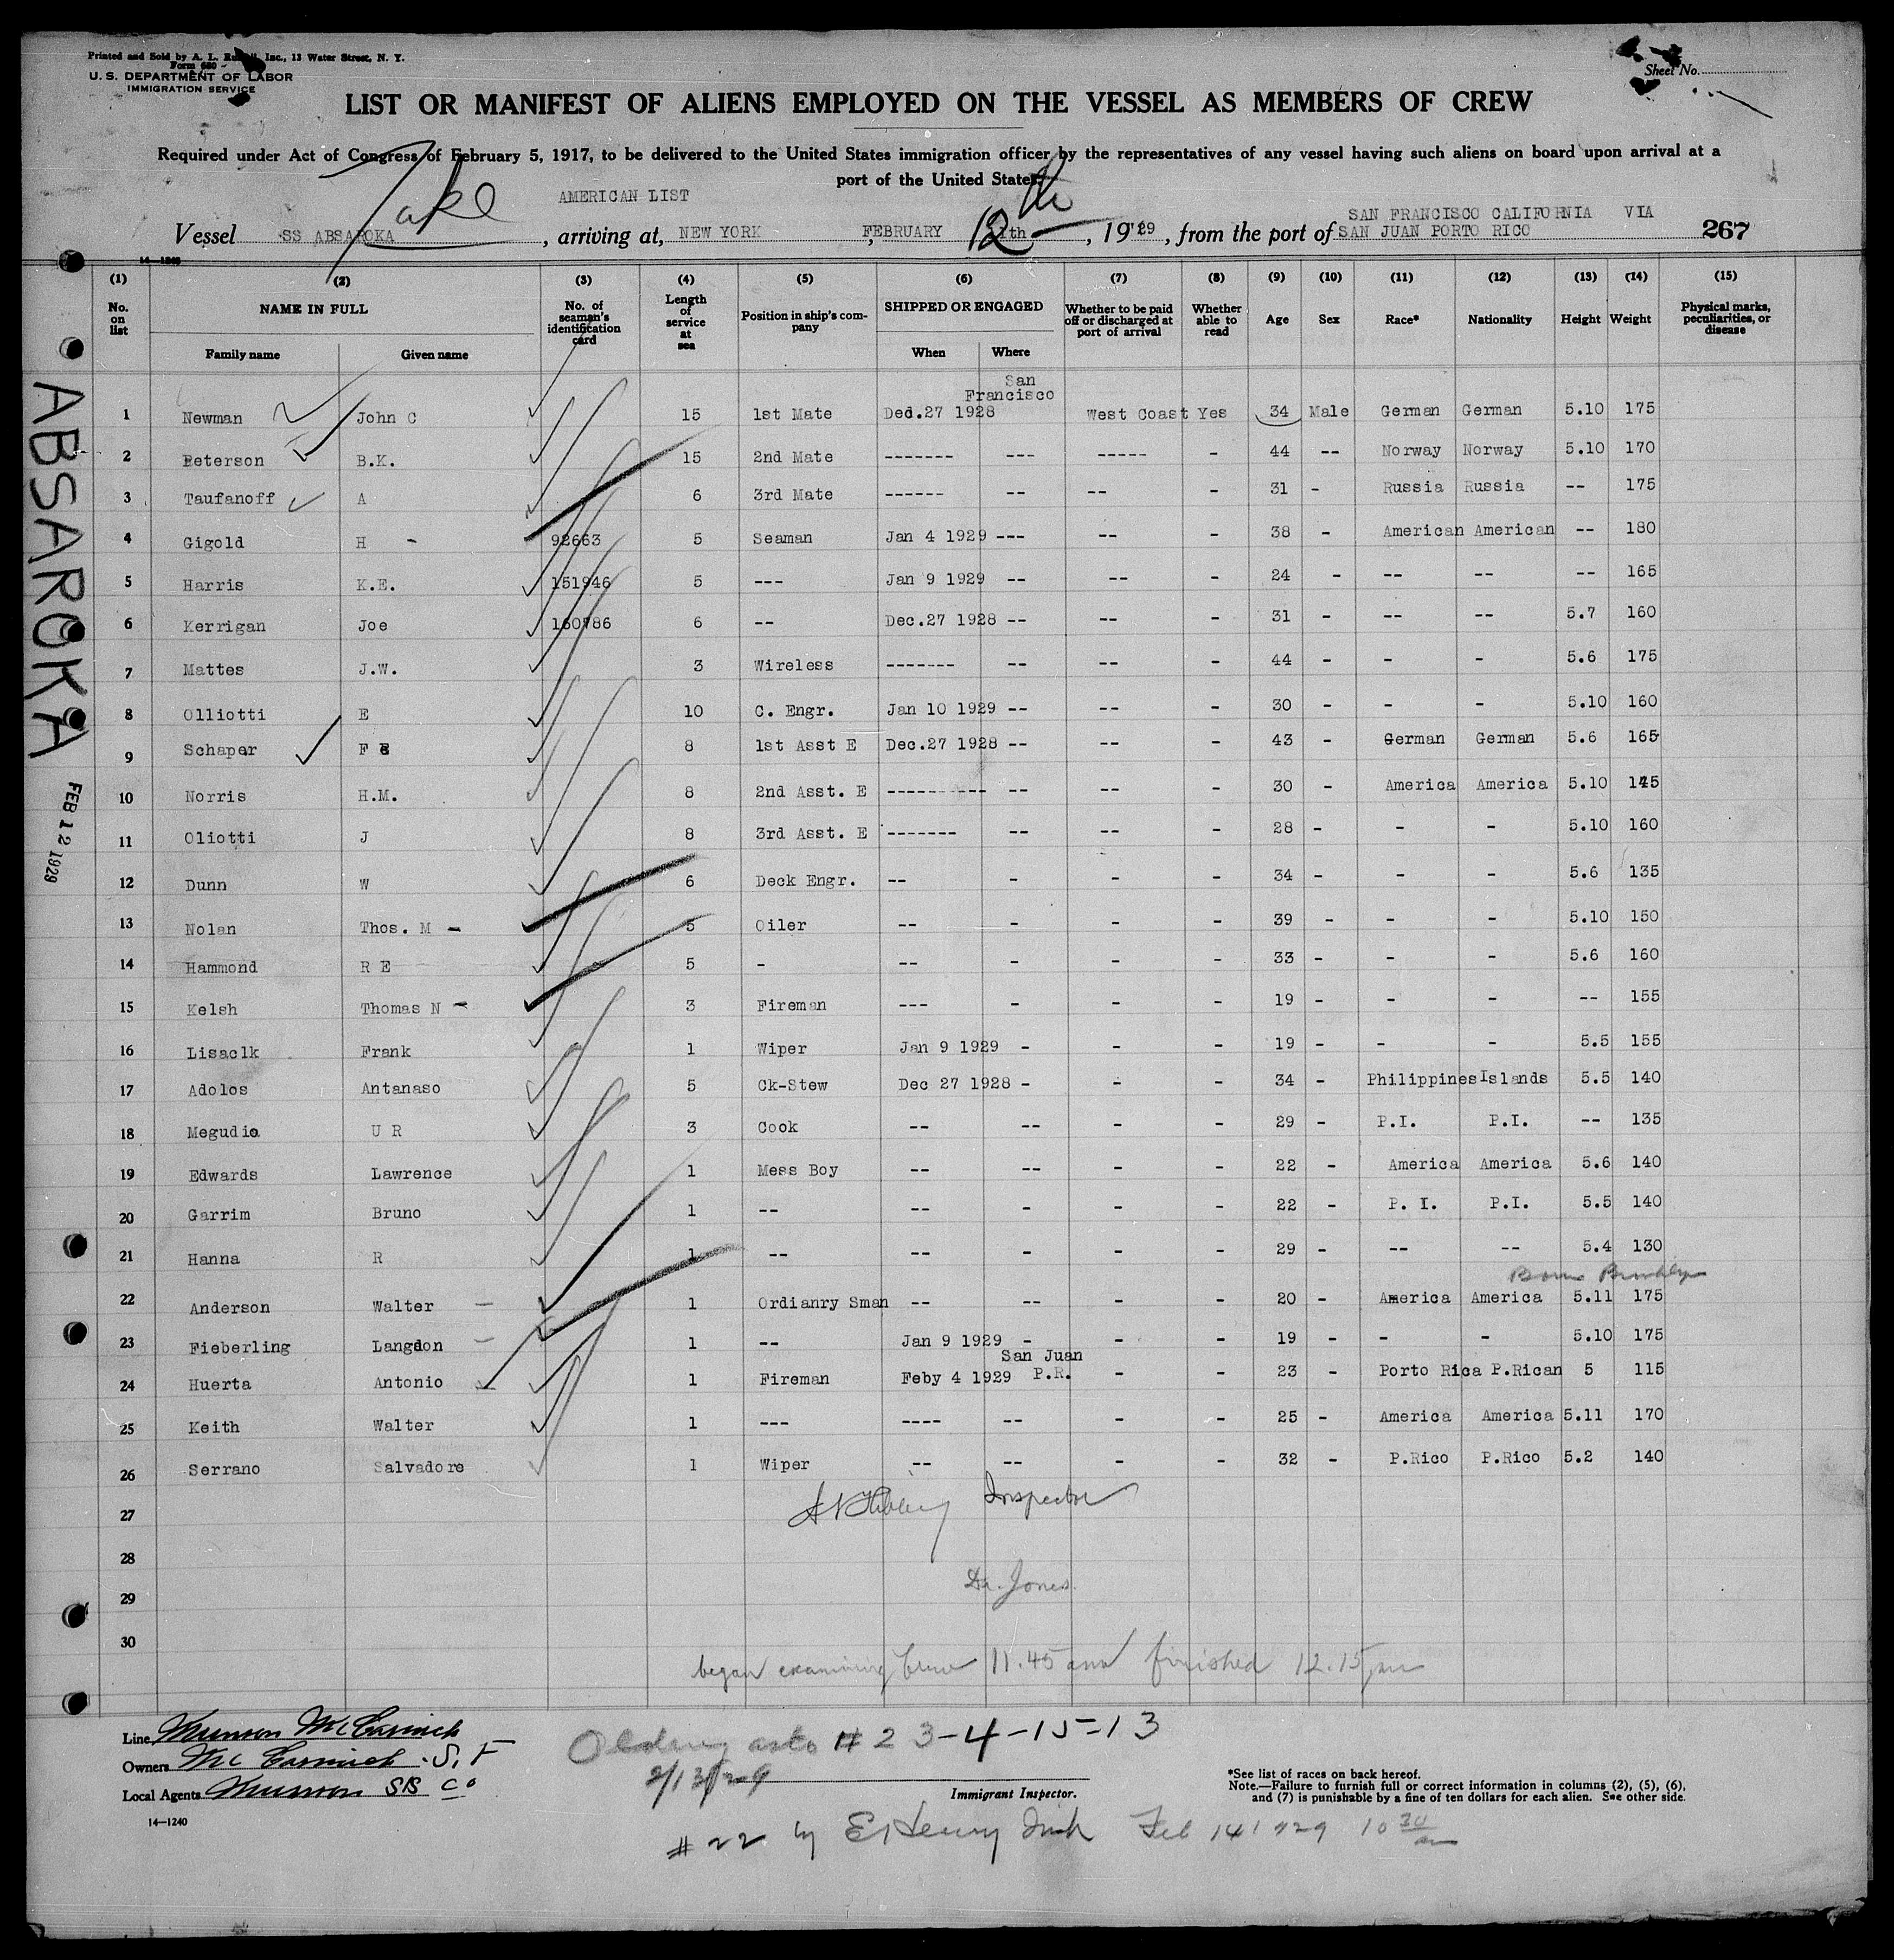 Printed and Sold by A. L. Russell, Inc., 13 Water Street, N. Y.
Form 680
U. S. DEPARTMENT OF LABOR
IMMIGRATION SERVICE
Sheet No.
LIST OR MANIFEST OF ALIENS EMPLOYED ON THE VESSEL AS MEMBERS OF CREW
Required under Act of Congress of February 5, 1917, to be delivered to the United States immigration officer by the representatives of any vessel having such aliens on board upon arrival at a
port of the United States.
AMERICAN LIST
Vessel SS ABSAROKA, arriving at, NEW YORK, FEBRUARY 12th, 1929, from the port of SAN FRANCISCO CALIFORNIA VIA SAN JUAN PORTO RICO 267
14-1240
(1) (2) (3) (4) (5) (6) (7) (8) (9) (10) (11) (12) (13) (14) (15)
No. on list NAME IN FULL No. of seaman's identification card Length of service at sea Position in ship's company SHIPPED OR ENGAGED Whether to be paid off or discharged at port of arrival Whether able to read Age Sex Race* Nationality Height Weight Physical marks, peculiarities, or disease
Family name Given name When Where
San Francisco
1 Newman John C 15 1st Mate Ded.27 1928 West Coast Yes 34 Male German German 5.10 175
2 Peterson B.K. 15 2nd Mate ------- --- ----- - 44 -- Norway Norway 5.10 170
3 Taufanoff A 6 3rd Mate ------ -- -- - 31 - Russia Russia -- 175
4 Gigold H - 92663 5 Seaman Jan 4 1929 --- -- - 38 - American American -- 180
5 Harris K.E. 151946 5 --- Jan 9 1929 -- -- - 24 - -- -- -- 165
6 Kerrigan Joe 160786 6 -- Dec.27 1928 -- -- - 31 - -- -- 5.7 160
7 Mattes J.W. 3 Wireless ------- -- -- - 44 - - - 5.6 175
8 Olliotti E 10 C. Engr. Jan 10 1929 -- -- - 30 - - - 5.10 160
9 Schaper F E 8 1st Asst E Dec.27 1928 -- -- - 43 - German German 5.6 165
10 Norris H.M. 8 2nd Asst. E ---------- -- -- - 30 - America America 5.10 145
11 Oliotti J 8 3rd Asst. E ------- -- -- - 28 - - - 5.10 160
12 Dunn W 6 Deck Engr. -- - - - 34 - - - 5.6 135
13 Nolan Thos. M - 5 Oiler -- - - - 39 - - - 5.10 150
14 Hammond R E 5 - -- - - - 33 - - - 5.6 160
15 Kelsh Thomas N - 3 Fireman --- - - - 19 - - - -- 155
16 Lisaclk Frank 1 Wiper Jan 9 1929 - - - 19 - - - 5.5 155
17 Adolos Antanaso 5 Ck-Stew Dec 27 1928 - - - 34 - Philippines Islands 5.5 140
18 Megudio U R 3 Cook -- -- - - 29 - P.I. P.I. -- 135
19 Edwards Lawrence 1 Mess Boy -- -- - - 22 - America America 5.6 140
20 Garrim Bruno 1 -- -- - - - 22 - P. I. P.I. 5.5 140
21 Hanna R 1 -- -- - - - 29 - -- -- 5.4 130
Born Brooklyn
22 Anderson Walter - 1 Ordianry Sman -- -- - - 20 - America America 5.11 175
23 Fieberling Langdon - 1 -- Jan 9 1929 - - - 19 - - - 5.10 175
24 Huerta Antonio 1 Fireman Feby 4 1929 San Juan P.R. - - 23 - Porto Rica P.Rican 5 115
25 Keith Walter 1 --- ---- -- - - 25 - America America 5.11 170
26 Serrano Salvadore 1 Wiper -- -- - - 32 - P.Rico P.Rico 5.2 140
27 Inspector
28
29 Dr. Jones
30
began examining Crew 11.45 am finished 12.15 pm
Line Munson McCormick
Owners McCormick S. F
Local Agents Munson SS Co
14-1240
# 23-4-15-13
2/13/29
Immigrant Inspector.
*See list of races on back hereof.
Note.—Failure to furnish full or correct information in columns (2), (5), (6),
and (7) is punishable by a fine of ten dollars for each alien. See other side.
# 22 by E Henry Feb 14 1929 10 30 am
ABSAROKA
FEB 12 1929